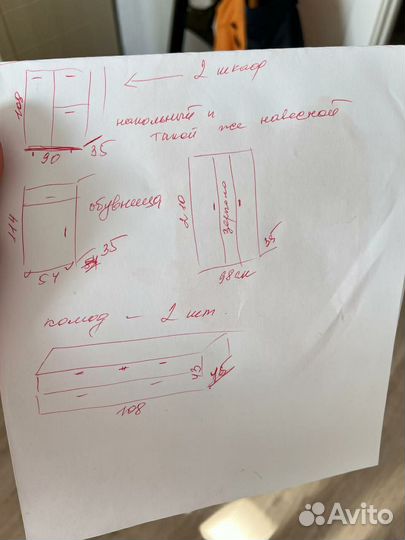 2 шкаф
108
напольный и
такой же навесной
90 35
обувница
114
54 35
210
зеркало
98см 35
комод - 2 шт.
43
45
108
Avito